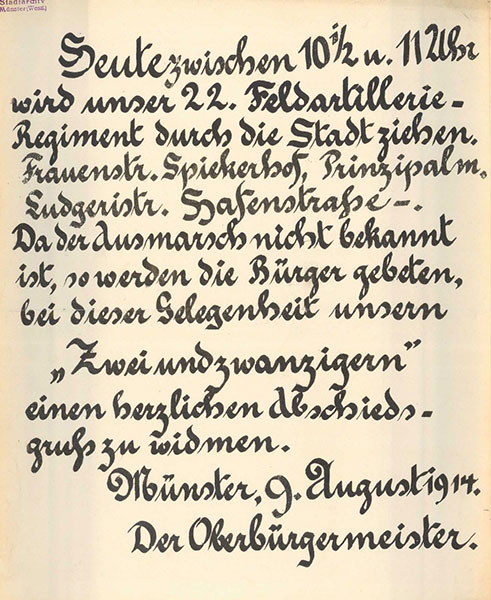 Stadtarchiv
Münster (Westf.)
Heute zwischen 10 1/2 u. 11 Uhr
wird unser 22. Feldartillerie-
Regiment durch die Stadt ziehen.
Frauenstr. Spiekerhof, Prinzipalm.
Ludgeristr. Hafenstraße-.
Da der Ausmarsch nicht bekannt
ist, so werden die Bürger gebeten,
bei dieser Gelegenheit unsern
„Zweiundzwanzigern"
einen herzlichen Abschieds-
gruß zu widmen.
Münster, 9. August 1914.
Der Oberbürgermeister.